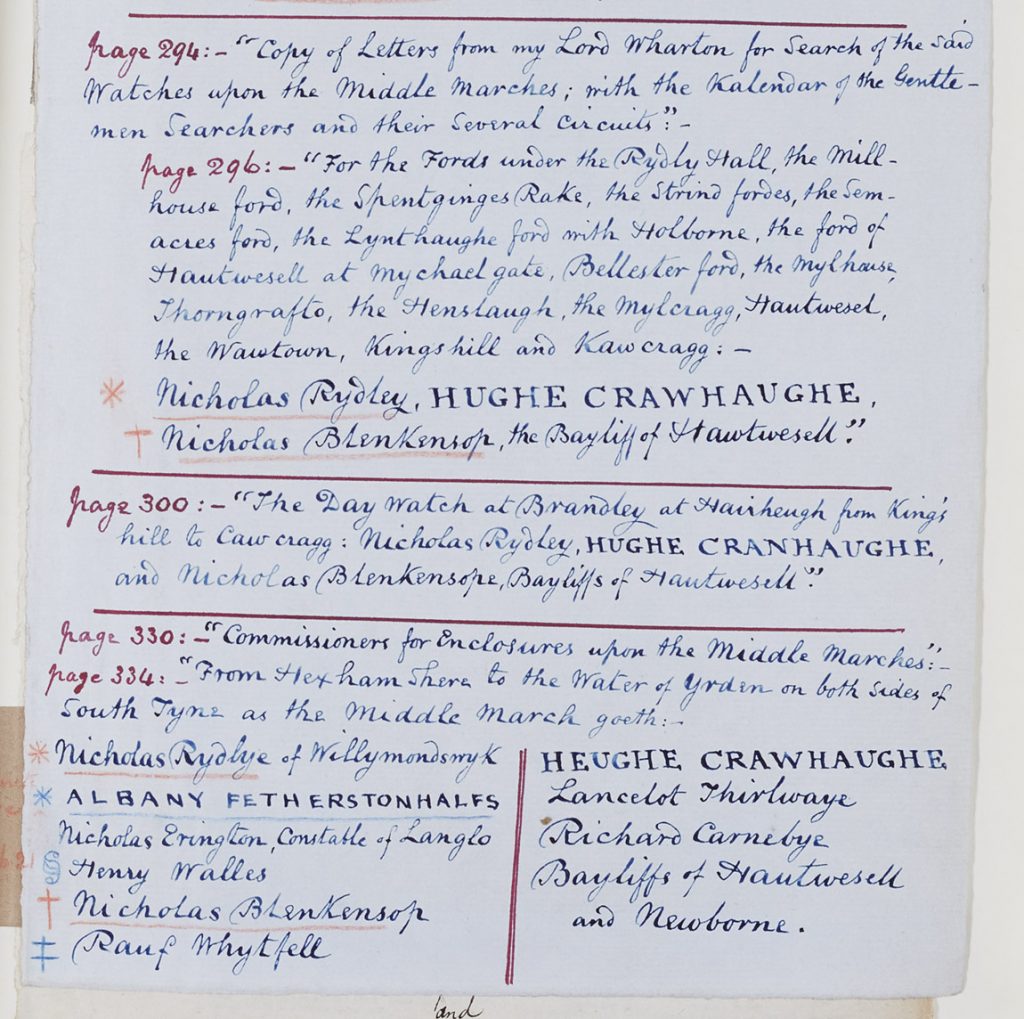 page 294:- "Copy of Letters from my Lord Wharton for Search of the said
Watches upon the Middle Marches; with the Kalendar of the Gentle-
men Searchers and their Several Circuits":-
page 296:- "For the Fords under the Rydly Hall, the Mill-
house ford, the Spentginges Rake, the Strind fordes, the Sem-
acres ford, the Lynthaughe ford with Holborne, the ford of
Hautwesell at Mychael gate, Bellester ford, the Mylhouse,
Thorngrafto, the Henslaugh, the Mylcragg, Hautwesel,
the Wawtown, Kingshill and Kawcragg:-
* Nicholas Rydley, HUGHE CRAWHAUGHE,
† Nicholas Blenkensop, the Bayliff of Hawtwesell."
page 300:- "The Day Watch at Brandley at Hairheugh from King's
hill to Cawcragg: Nicholas Rydley, HUGHE CRANHAUGHE,
and Nicholas Blenkensope, Bayliffs of Hautwesell."
page 330:- "Commissioners for Enclosures upon the Middle Marches":-
page 334:- "From Hexham Shere to the Water of Yrden on both sides of
South Tyne as the Middle March goeth:-
* Nicholas Rydlye of Willymondswyk
* ALBANY FETHERSTONHALFS
Nicholas Erington, Constable of Langlo
Henry Walles
† Nicholas Blenkensop
‡ Rauf Whytfell
HEUGHE CRAWHAUGHE
Lancelot Thirlwaye
Richard Carnebye
Bayliffs of Hautwesell
and Newborne.
and